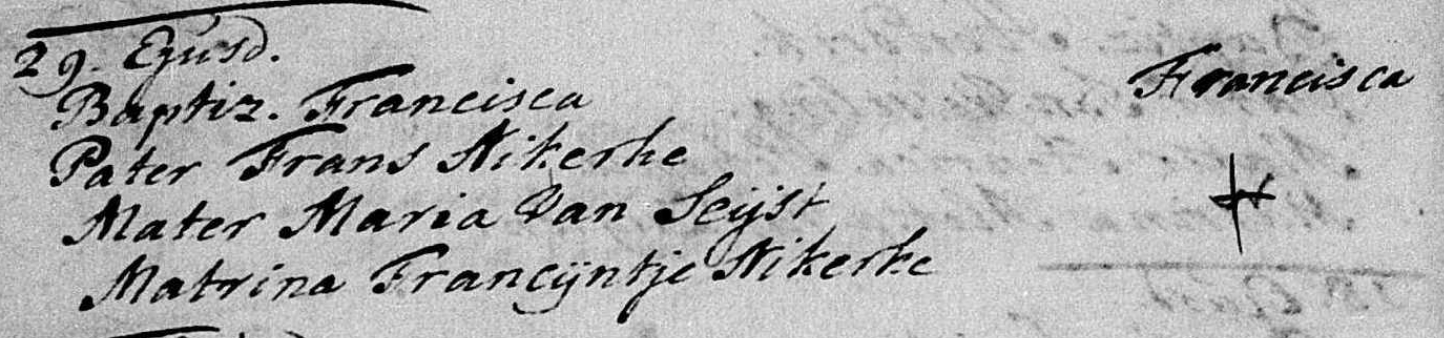 29. Ejusd.
Baptiz. Francisca
Francisca
Pater Frans Nikerke
Mater Maria Van Seijst
Matrina Francijntje Nikerke